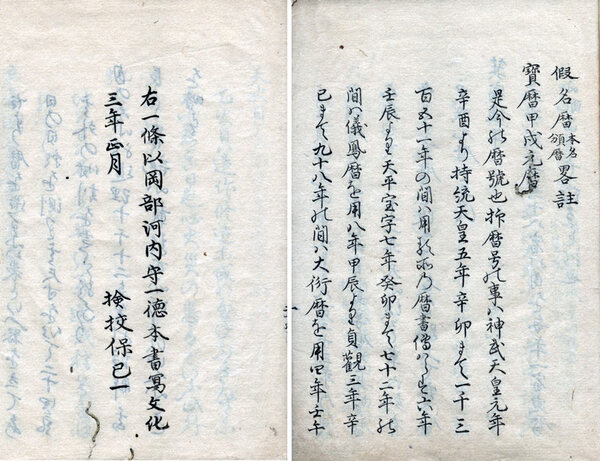 假名暦本名頒暦畧註
寶暦甲戌元暦
是今の暦號也抑暦号の事ハ神武天皇元年
辛酉より持統天皇五年辛卯まて一千三
百五十一年の間ハ用る所乃暦書傳ハらす六年
壬辰より天平宝字七年癸卯まて七十二年の
間ハ儀鳳暦を用八年甲辰より貞觀三年辛
巳まて九十八年の間ハ大衍暦を用四年壬午
右一條以岡部河内守一德本書寫文化
三年正月
檢挍保己一